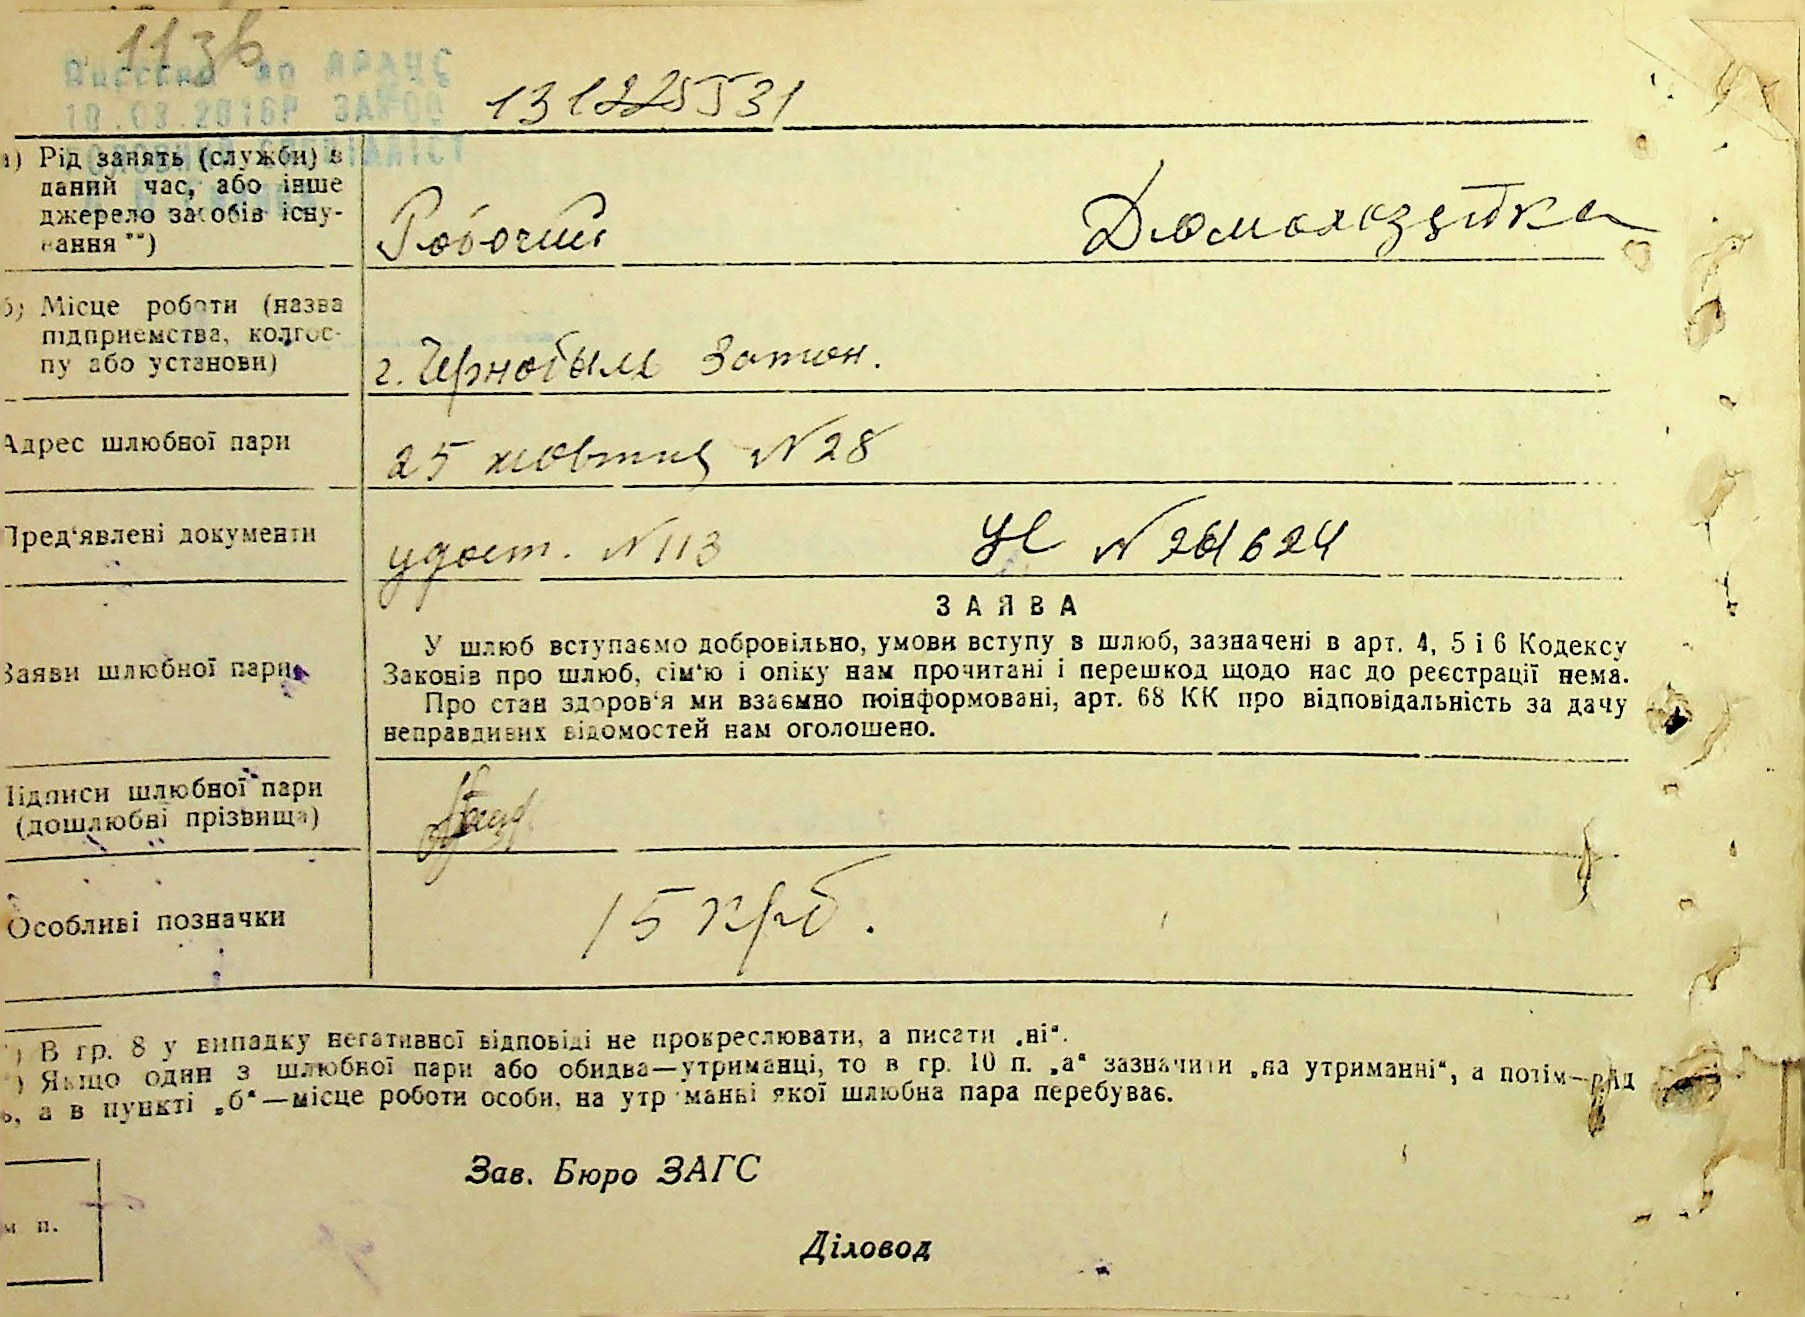 113в
131225531
Рід занять (служби) в
даний час, або інше
джерело засобів існу-
вання **)
Робочий
Домохозяйка
б) Місце роботи (назва
підприємства, колгос-
пу або установи)
г. Чернобыль Затон.
Адрес шлюбної пари
25 жовтня N 28
Пред'явлені документи
удост. N 113
N 261624
ЗАЯВА
Заяви шлюбної пари
У шлюб вступаємо добровільно, умови вступу в шлюб, зазначені в арт. 4, 5 і 6 Кодексу
Законів про шлюб, сім'ю і опіку нам прочитані і перешкод щодо нас до реєстрації нема.
Про стан здоров'я ми взаємно поінформовані, арт. 68 КК про відповідальність за дачу
неправдивих відомостей нам оголошено.
Підписи шлюбної пари
(дошлюбні прізвища)
Особливі позначки
15 крб.
*) В гр. 8 у випадку негативної відповіді не прокреслювати, а писати „ні“.
*) Якщо один з шлюбної пари або обидва—утриманці, то в гр. 10 п. „а“ зазначити „на утриманні“, а потім—рід
ь, а в пункті „б“—місце роботи особи, на утриманні якої шлюбна пара перебуває.
Зав. Бюро ЗАГС
м п.
Діловод